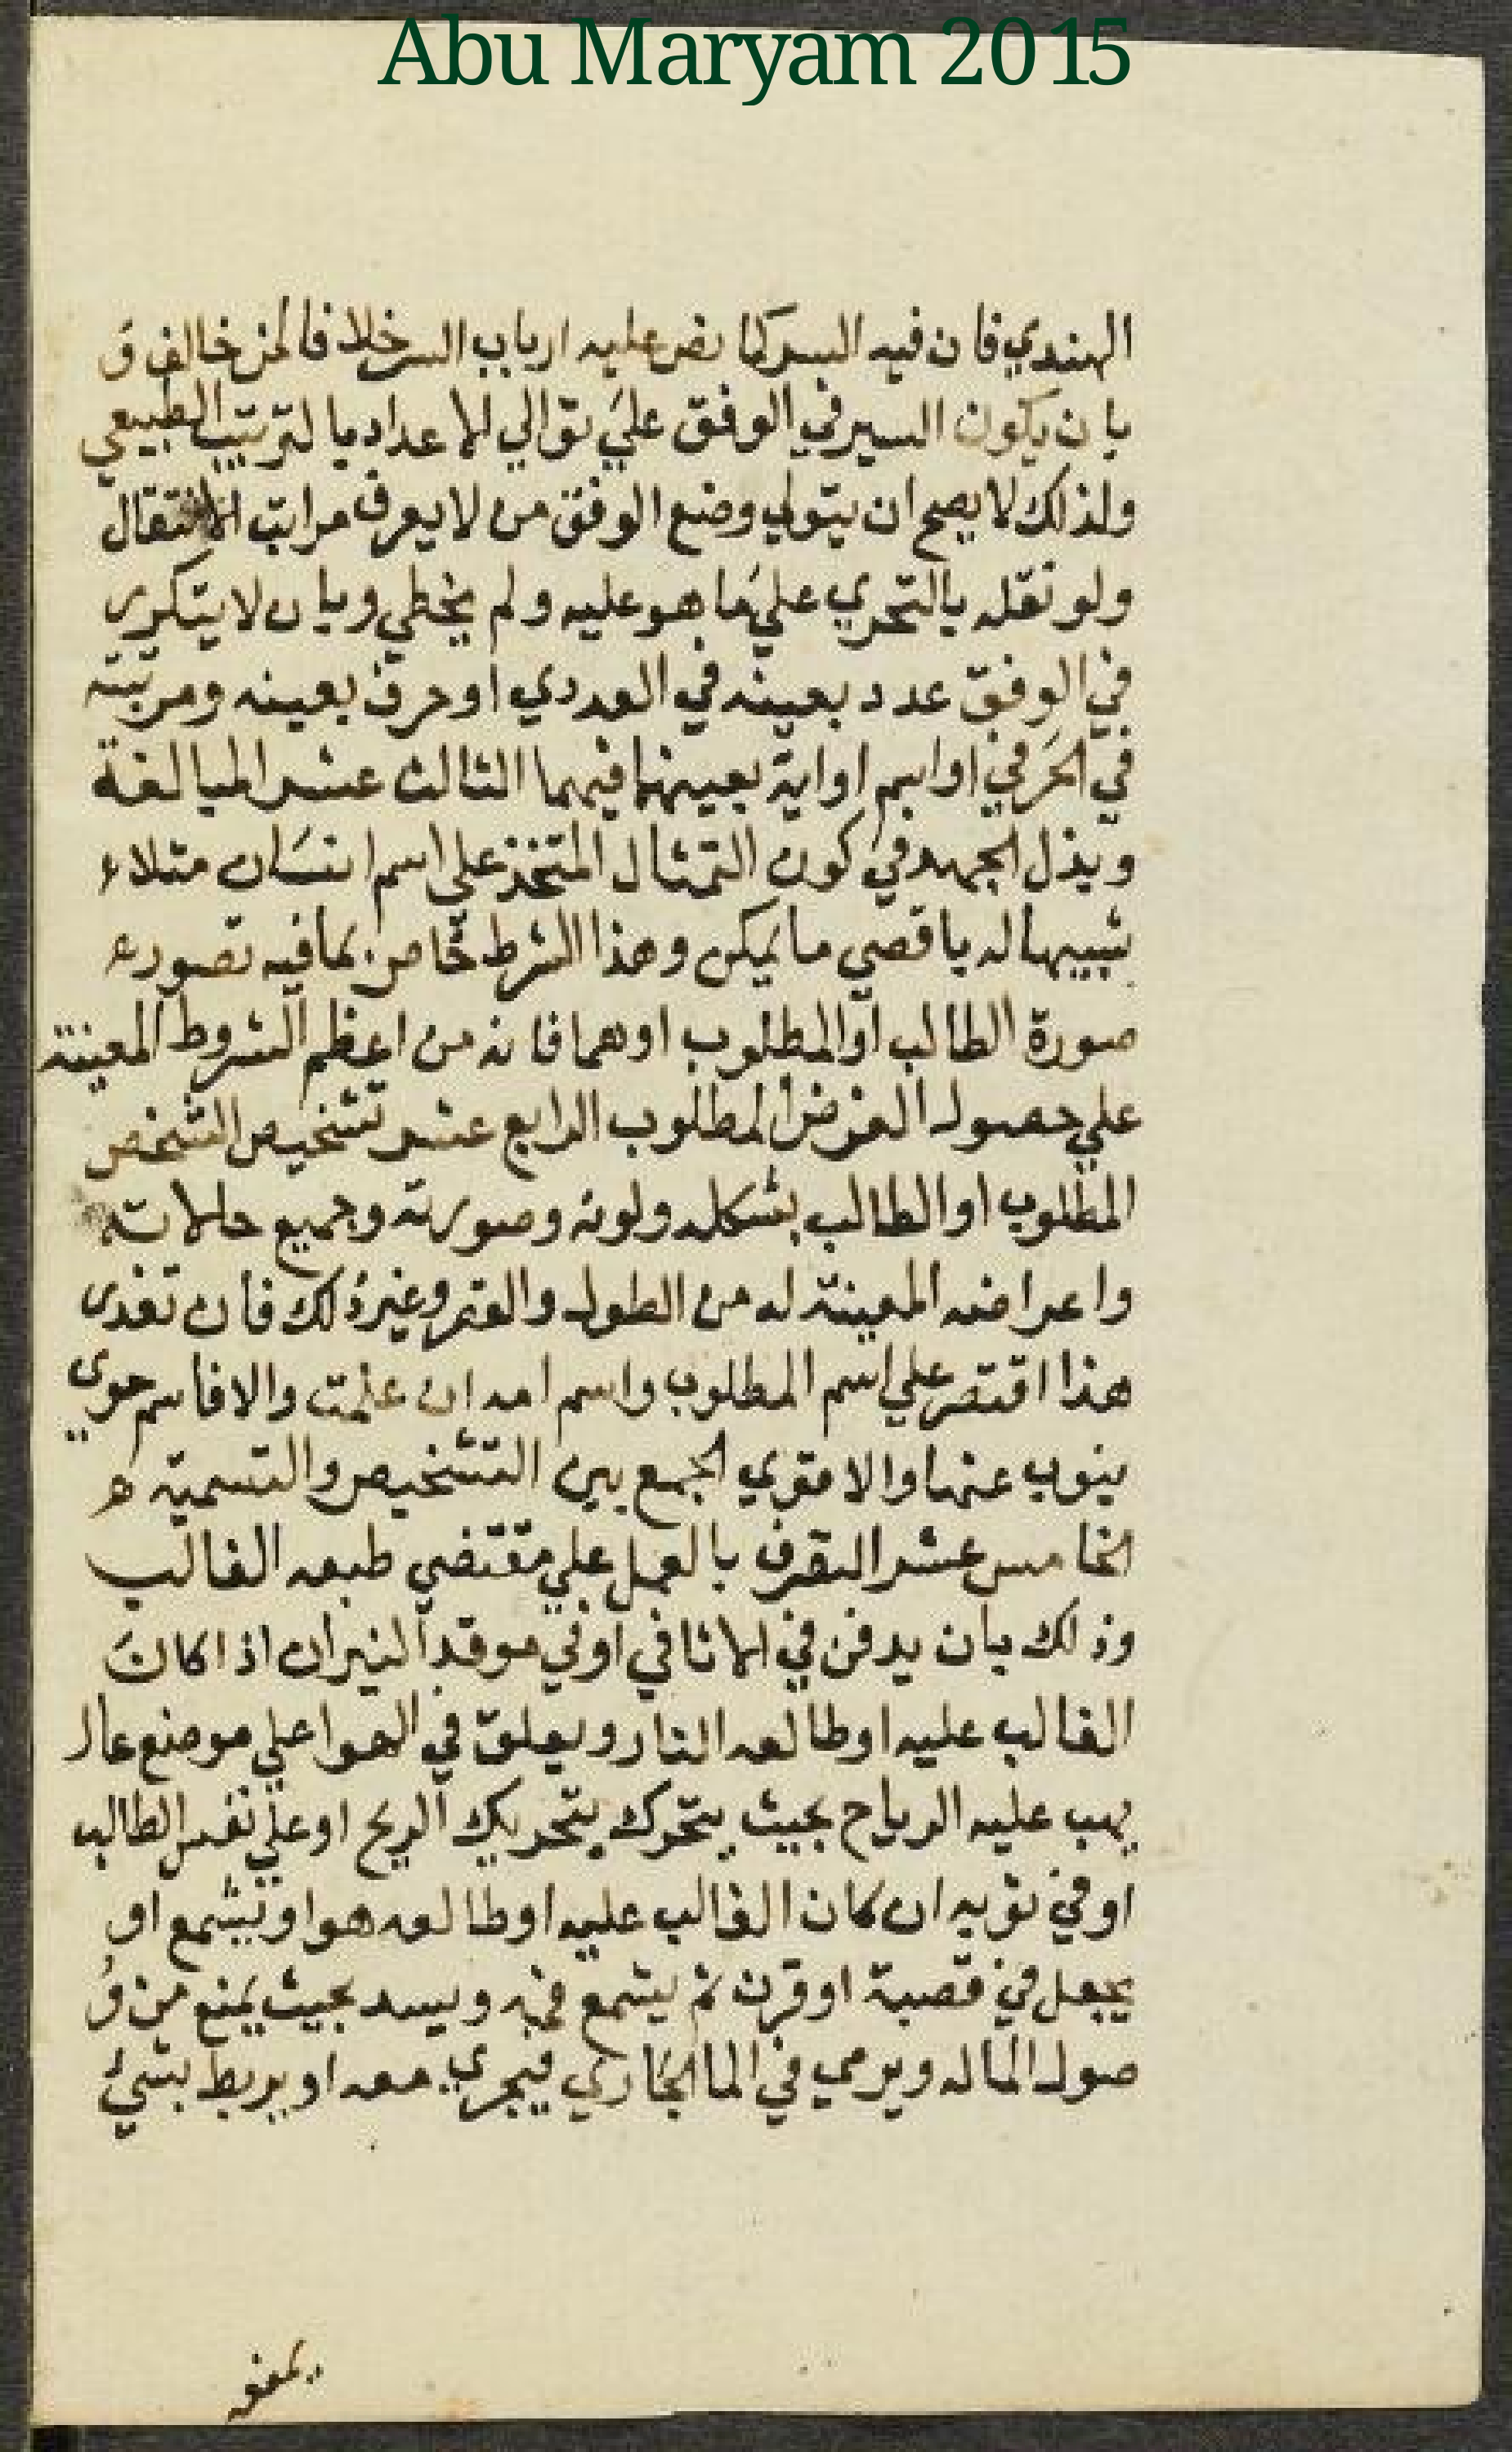 Abu Maryam 2015
الهندي فان فيه السر كما نص عليه ارباب السر خلافا لمن خالف و
بان يكون السير في الوفق علي توالي الاعداد بالترتيب الطبيعي
ولذلك لا يصح ان يتولي وضع الوفق من لا يعرف مراتب الانتقال
ولو نقله بالتحري علي ما هو عليه ولم يخطي وبان لا يتكرر
في الوفق عدد بعينه في العددي او حرف بعينه ومرتبته
في الحرفي او اسم او اية بعينها فيهما الثالث عشر المبالغة
وبذل الجهد في كون التمثال المتخذ علي اسم انسان مثلا
شبيها له باقصي ما يمكن وهذا الشرط خاص بما فيه تصور
صورة الطالب او المطلوب او هما فانه من اعظم الشروط المعينة
علي حصول الغرض المطلوب الرابع عشر تشخيص الشخص
المطلوب او الطالب بشكله ولونه وصورته وجميع حالاته
واعراضه المعينة له من الطول والقصر وغير ذلك فان تعذر
هذا اقتصر علي اسم المطلوب واسم امه ان علمت والا فاسم حوي
ينوب عنها والاقوي الجمع بين التشخيص والتسمية ه
الخامس عشر التصرف بالعمل علي مقتضي طبعه الغالب
وذلك بان يدفن في الاثافي او في موقد النيران اذا كان
الغالب عليه او طالعه النار ويعلق في الهوا علي موضع عال
يهب عليه الرياح بحيث يتحرك بتحريك الريح او علي نفس الطالب
او في ثوبه ان كان الغالب عليه او طالعه هوا ويشمع او
يجعل في قصبة او قرن ثم يشمع فمه ويسد بحيث يمنع من و
صول الما له ويرمي في الما الجاري فيجري معه او يربط بشيء